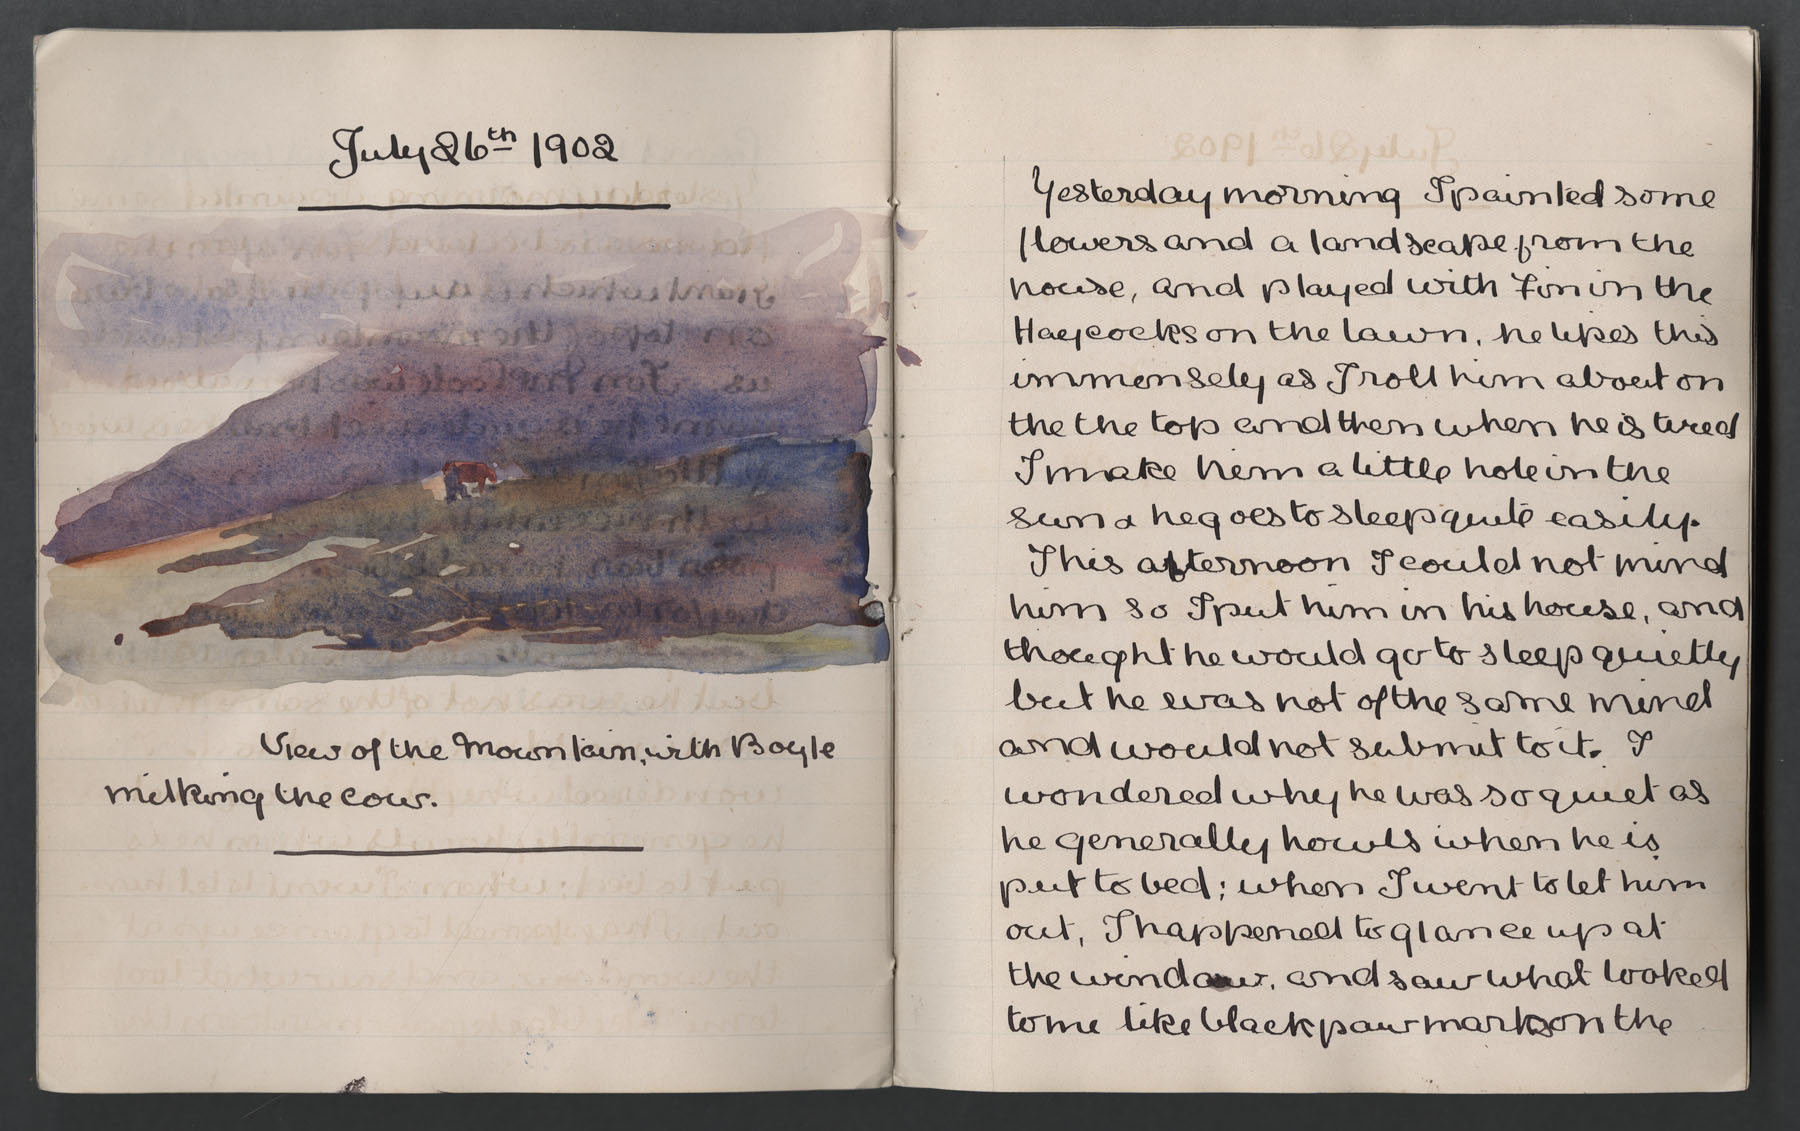 July 26th 1902
View of the Mountain, with Boyle
milking the cow.
Yesterday morning I painted some
flowers and a landscape from the
house, and played with Finn in the
Haycocks on the lawn, he likes this
immensely as I roll him about on
the the top and then when he is tired
I make him a little hole in the
sun & he goes to sleep quite easily.
This afternoon I could not mind
him so I put him in his house, and
thought he would go to sleep quietly
but he was not of the same mind
and would not submit to it. I
wondered why he was so quiet as
he generally howls when he is
put to bed; when I went to let him
out, I happened to glance up at
the window, and saw what looked
to me like black paw marks on the